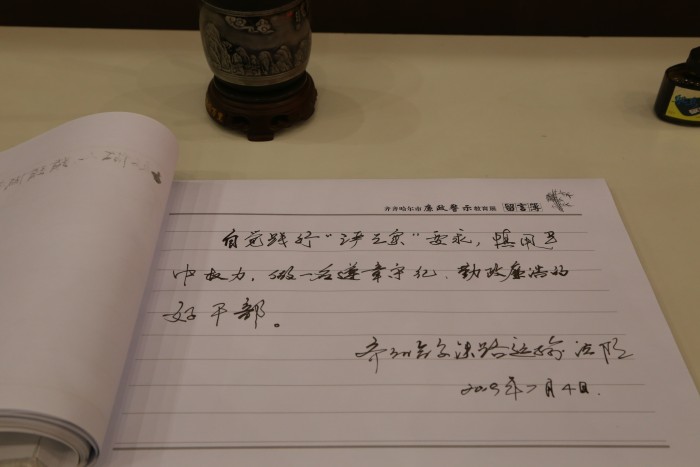 齐齐哈尔市廉政警示教育展 留言簿
自觉践行“三严三实”要求，慎用手
中权力，做一名遵章守纪、勤政廉洁的
好干部。
齐齐哈尔铁路运输法院
月4日.